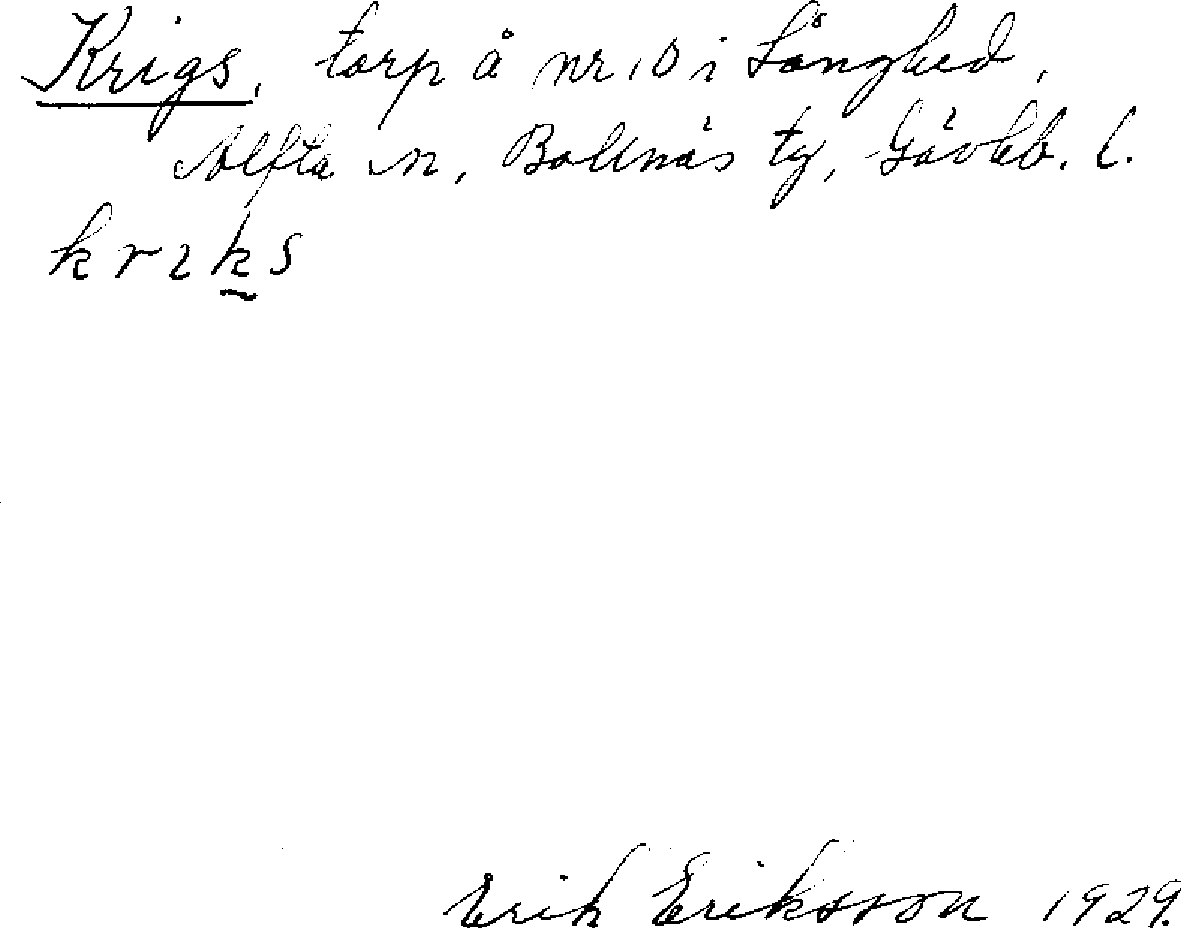 Krigs, torp å nr 10 i Långhed,
Alfta sn, Bollnäs tg, Gävleb. l.
krıks
Erik Eriksson 1929.